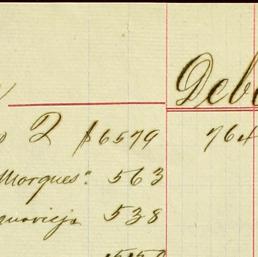 Deb
2 $6579 764
Morques". 563
538